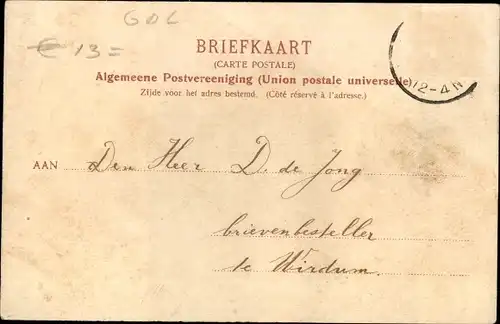 GOL
€ 13=
BRIEFKAART
(CARTE POSTALE)
Algemeene Postvereeniging (Union postale universelle)
Zijde voor het adres bestemd. (Côté réservé à l'adresse.)
12-4N
AAN Den Heer D. de Jong
brievenbesteller
te Wirdum.